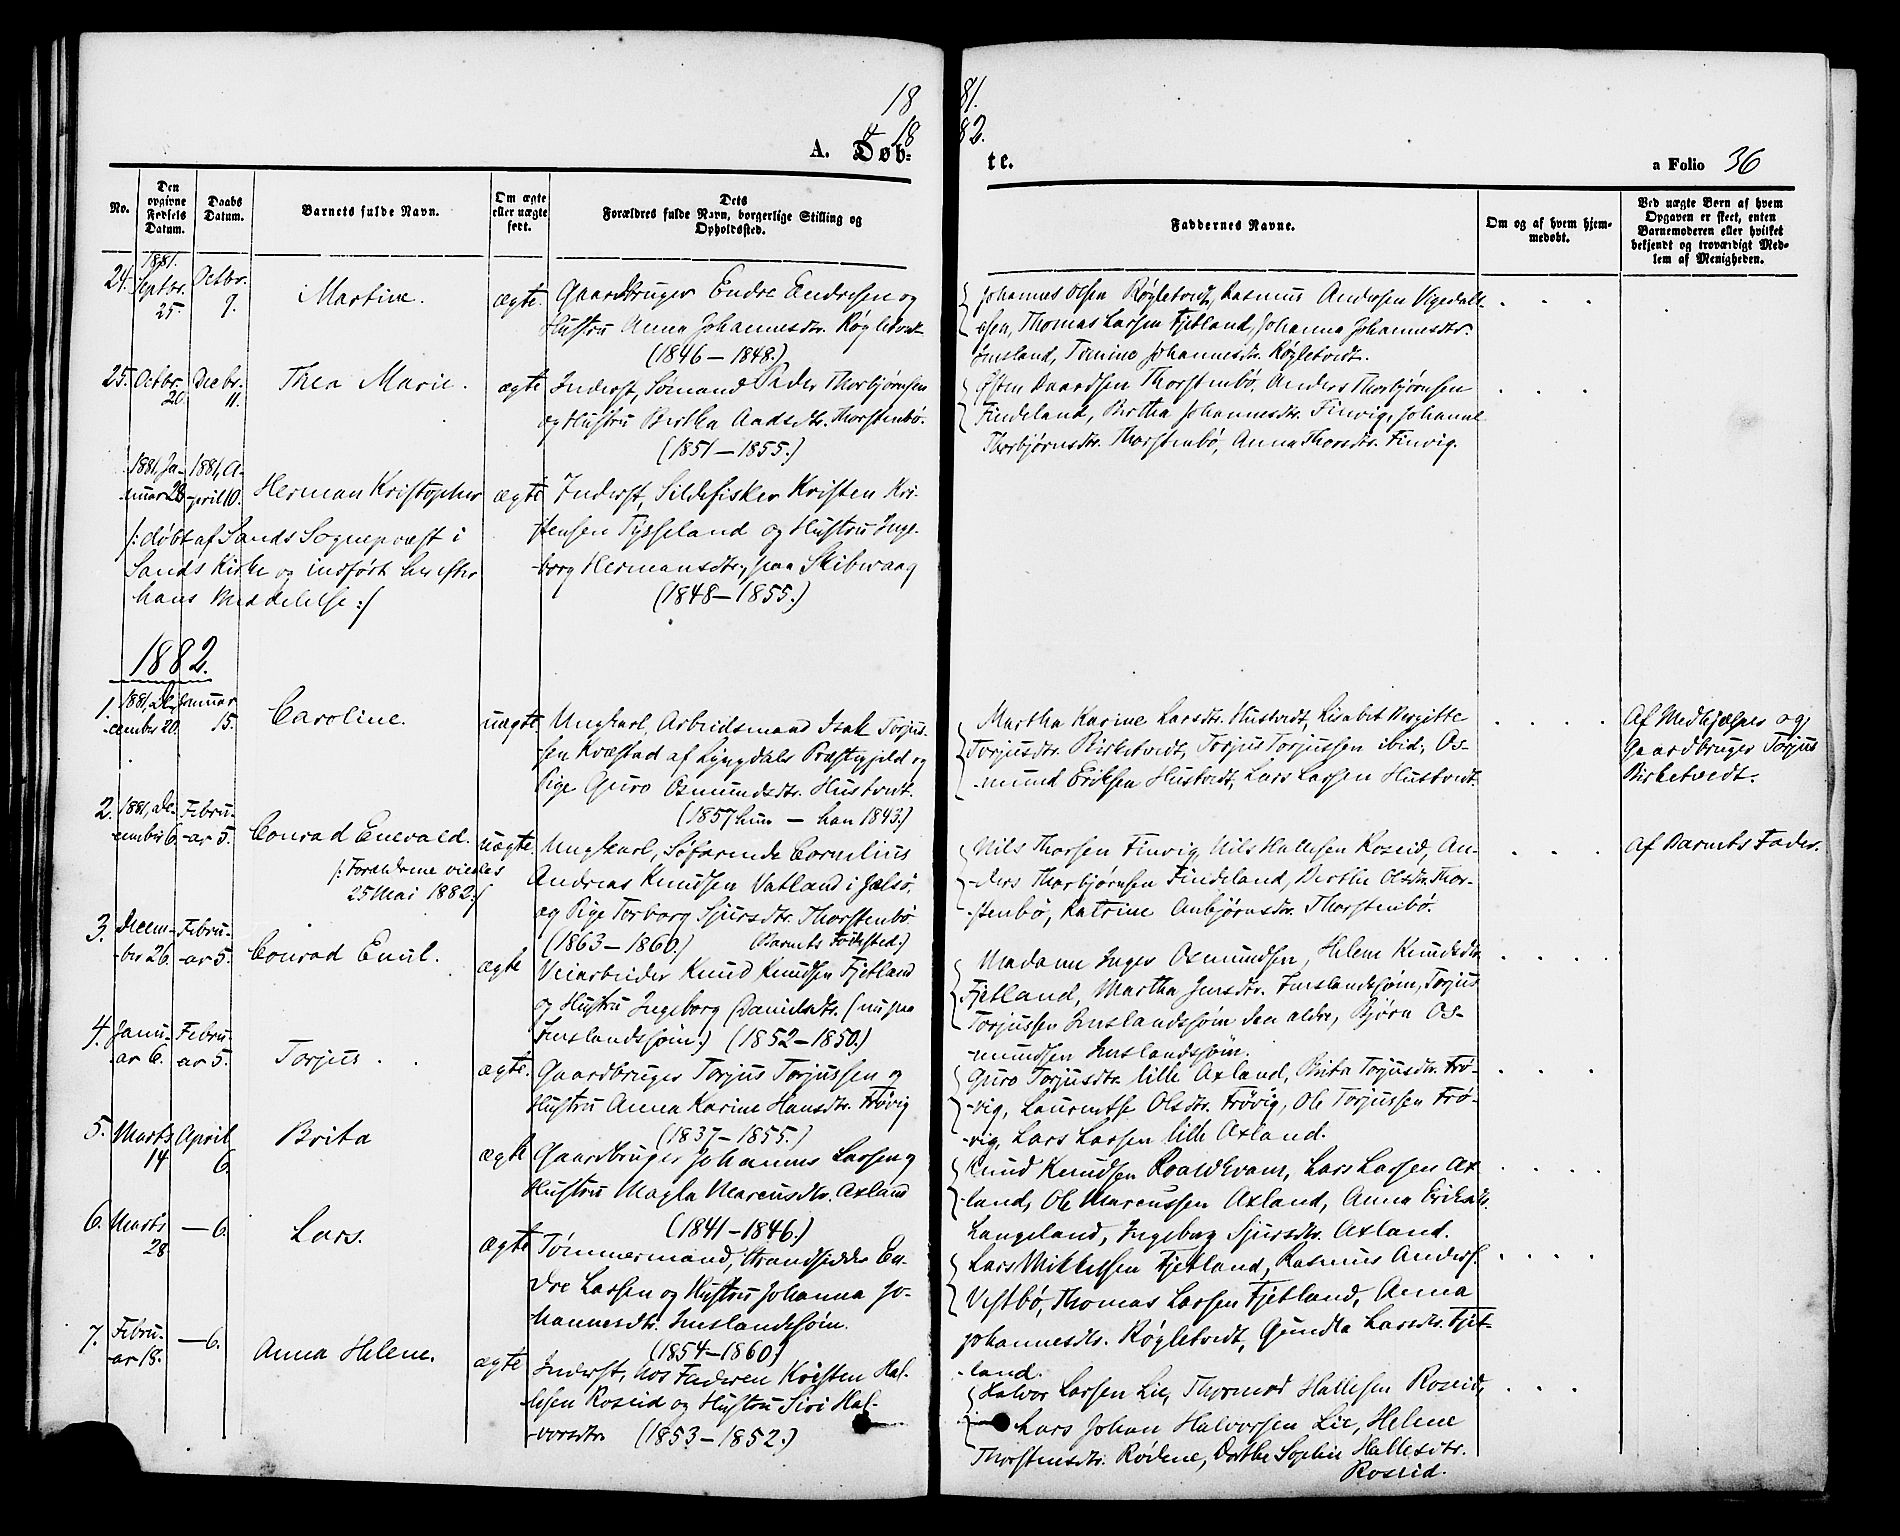 18 81.
& 18 82.
A. Døb- te.
a Folio 36
No.
Den opgivne Fødsels Datum.
Daabs Datum.
Barnets fulde Navn.
Om ægte eller uægte født.
Dets Forældres fulde Navn, borgerlige Stilling og Opholdssted.
Faddernes Navne.
Om og af hvem hjemmedøbt.
Ved uægte Børn af hvem Opgaven er skeet, enten Barnemoderen eller hvilket bekjendt og troværdigt Medlem af Menigheden.
24. 1881. Septbr. 25. Octbr. 9. Martine. ægte.
Gaardbruger Endre Endresen og
Hustru Anna Johannesdtr. Røgletvedt
(1846 – 1848.)
Johannes Olsen Røgletvedt, Rasmus Andersen Vigedalt-
sen, Thomas Larsen Fjetland, Johanna Johannesdtr.
Ømsland, Johannesdtr. Røgletvedt.
25. Octbr. 20. Decbr. 11. Thea Marie. ægte
Inderst, Sømand Peder Thorbjørnsen
og Hustru Bertha Aadsdtr. Thorstenbø.
(1851 – 1855.)
Østen Daardsen Thorstenbø, Anders Thorbjørnsen
Findeland, Bertha Johannesdtr. Finvig, Johanne
Thorbjørnsdtr. Thorstenbø, Anna Thorsdtr. Finvig.
1881, Ja-
nuar 28 1881, A-
pril 10. Herman Kristopher ægte
Inderst, Sildefisker Kristen Kri-
stensen Tysseland og Hustru Inge-
borg Hermansdtr., paa Skibevaag
(1848 – 1855.)
/: døbt af Sands Sognepræst i
Sands Kirke og indført her efter
hans Meddelelse :/
1882.
1. 1881, De-
cember 20. Januar 15. Caroline. uægte
Ungkarl, Arbeidsmand Isak Torjus-
sen Kvæstad af Lyngdals Præstegjeld og
Pige Guro Osmundsdtr. Hustvedt.
(1857 hun – han 1843.)
Martha Karine Larsdtr. Hustvedt, Lisabet Birgitte
Torjusdtr. Birketvedt, Torjus Torjussen ibid, Os-
mund Eriksen Hustvedt, Lars Larsen Hustvedt.
Af Medhjælper og
Gaardbruger Torjus
Birketvedt.
2. 1881, De-
cember 6. Febru-
ar 5. Conrad Enevald. uægte
/: Forældrene viedes
25 Mai 1882 :/
Ungkarl, Søfarende Cornelius
Andreas Knudsen Vatland i Jælsø,
og Pige Torborg Sjursdtr. Thorstenbø
(1863 – 1860) (Barnets Fødested.)
Nils Thorsen Finvig, Nils Hallesen Roseid, An-
ders Thorbjørnsen Findeland, Berthe Olsdtr. Thor-
stenbø, Katrine Anbjørnsdtr. Thorstenbø.
Af Barnets Fader.
3. Decem-
ber 26 Febru-
ar 5. Conrad Emil. ægte
Veiarbeider Knud Knudsen Fjetland
og Hustru Ingeborg Danielsdtr. (nu paa
Imslandssøm.) (1852 – 1850.)
Madame Inger Osmundsen, Helene Knudsdtr.
Fjetland, Martha Jensdtr. Imslandssøm, Torjus
Torjussen Imslandssøm den ældre, Bjørn Os-
mundsen Imslandssøm.
4. Janu-
ar 6. Febru-
ar 5. Torjus. ægte.
Gaardbruger Torjus Torjussen og
Hustru Anna Karine Hansdtr. Frøvig
(1837 – 1855.)
Guro Torjusdtr. lille Axland, Brita Torjusdtr. Frø-
vig, Laurentse Olsdtr. Frøvig, Ole Torjussen Frø-
vig, Lars Larsen lille Axland.
5. Marts 14 April 6. Brita ægte
Gaardbruger Johannes Larsen og
Hustru Magla Marcusdtr. Axland
(1841 – 1846.)
Knud Knudsen Roaldkvam, Lars Larsen Ax-
land, Ole Marcussen Axland, Anna Eriksdtr.
Langeland, Ingeborg Sjursdtr. Axland.
6. Marts 28 — 6. Lars. ægte
Tømmermand, Strandsidder En-
dre Larsen og Hustru Johanna Jo-
hannesdtr. Imslandssøm.
(1854 – 1860)
Lars Mikkelsen Fjetland, Rasmus Anders.
Vestbø, Thomas Larsen Fjetland, Anna
Johannesdtr. Røgletvedt, Gundla Larsdtr. Fjet-
land.
7. Febru-
ar 18. — 6. Anna Helene. ægte
Inderst, hos Faderen Kristen Hal-
lesen Roseid og Hustru Siri Hal-
vorsdtr. (1853 – 1852.)
Halvor Larsen Lie, Thormod Hallesen Roseid,
Lars Johan Halvorsen Lie, Helene
Thorstensdtr. Rødene, Dorthe Sophie Hallesdtr.
Roseid.